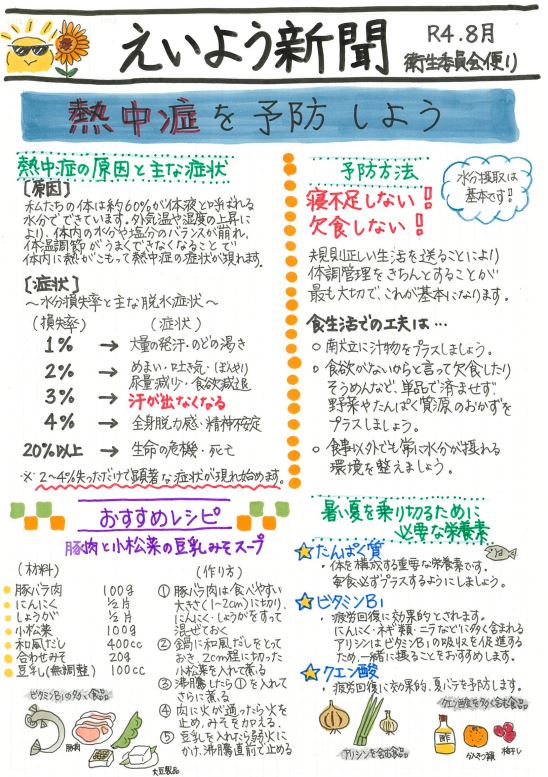 えいよう新聞
R4.8月
衛生委員会便り
熱中症を予防しよう
熱中症の原因と主な症状
[原因]
私たちの体は約60%が体液と呼ばれる
水分でできています。外気温や湿度の上昇に
より、体内の水分や塩分のバランスが崩れ、
体温調節がうまくできなくなることで
体内に熱がこもって熱中症の症状が現れます。
[症状]
～水分損失率と主な脱水症状～
(損失率) (症状)
1% → 大量の発汗・のどの渇き
2% → めまい・吐き気・ぼんやり
尿量減少・食欲減退
3% → 汗が出なくなる
4% → 全身脱力感・精神不安定
20%以上 → 生命の危機・死亡
※2～4%失っただけで顕著な症状が現れ始めます。
予防方法
水分摂取は
基本です!
寝不足しない!!
欠食しない!!
規則正しい生活を送ることにより
体調管理をきちんとすることが
最も大切で、これが基本になります。
食生活での工夫は…
○ 献立に汁物をプラスしましょう。
○ 食欲がないからと言って欠食したり
そうめんなど、単品で済ませず、
野菜やたんぱく質源のおかずを
プラスしましょう。
○ 食事以外でも常に水分が摂れる
環境を整えましょう。
おすすめレシピ
豚肉と小松菜の豆乳みそスープ
(材料)
豚バラ肉 100g
にんにく 1/2片
しょうが 1/2片
小松菜 100g
和風だし 400cc
合わせみそ 20g
豆乳(無調整) 100cc
(作り方)
① 豚バラ肉は食べやすい
大きさ(1~2cm)に切り、
にんにく・しょうがをすって
混ぜておく
② 鍋に和風だしをとって
おき、2cm程に切った
小松菜を入れて煮る
③ 沸騰したら①を入れて
さらに煮る
④ 肉に火が通ったら火を
止め、みそを加える。
⑤ 豆乳を入れたら弱火に
かけ、沸騰直前で止める
ビタミンB1の多い食品
豚肉
大豆製品
暑い夏を乗り切るために
必要な栄養素
たんぱく質
・体を構成する重要な栄養素です。
毎食必ずプラスするようにしましょう。
ビタミンB1
・疲労回復に効果的とされます。
にんにく・ネギ類・ニラなどに多く含まれる
アリシンはビタミンB1の吸収を促進する
ため、一緒に摂ることをおすすめします。
クエン酸
・疲労回復に効果的。夏バテを予防します。
アリシンを含む食品
クエン酸を多く含む食品
酢
かんきつ類
梅干し